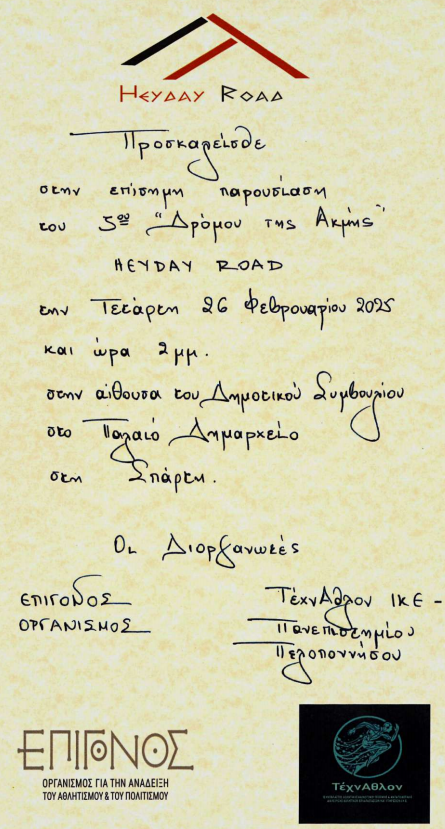 HEYDAY ROAD
Προσκαλείσθε
στην επίσημη παρουσίαση
του 5ου "Δρόμου της Ακμής"
HEYDAY ROAD
την Τετάρτη 26 Φεβρουαρίου 2025
και ώρα 2μμ.
στην αίθουσα του Δημοτικού Συμβουλίου
στο Παλαιό Δημαρχείο
στη Σπάρτη.
Οι Διοργανωτές
ΕΠΙΓΟΝΟΣ
ΟΡΓΑΝΙΣΜΟΣ
ΤέχνΑθλον ΙΚΕ -
Πανεπιστημίου
Πελοποννήσου
ΕΠΙΓΟΝΟΣ
ΟΡΓΑΝΙΣΜΟΣ ΓΙΑ ΤΗΝ ΑΝΑΔΕΙΞΗ
ΤΟΥ ΑΘΛΗΤΙΣΜΟΥ & ΤΟΥ ΠΟΛΙΤΙΣΜΟΥ
ΤέχνΑθλον